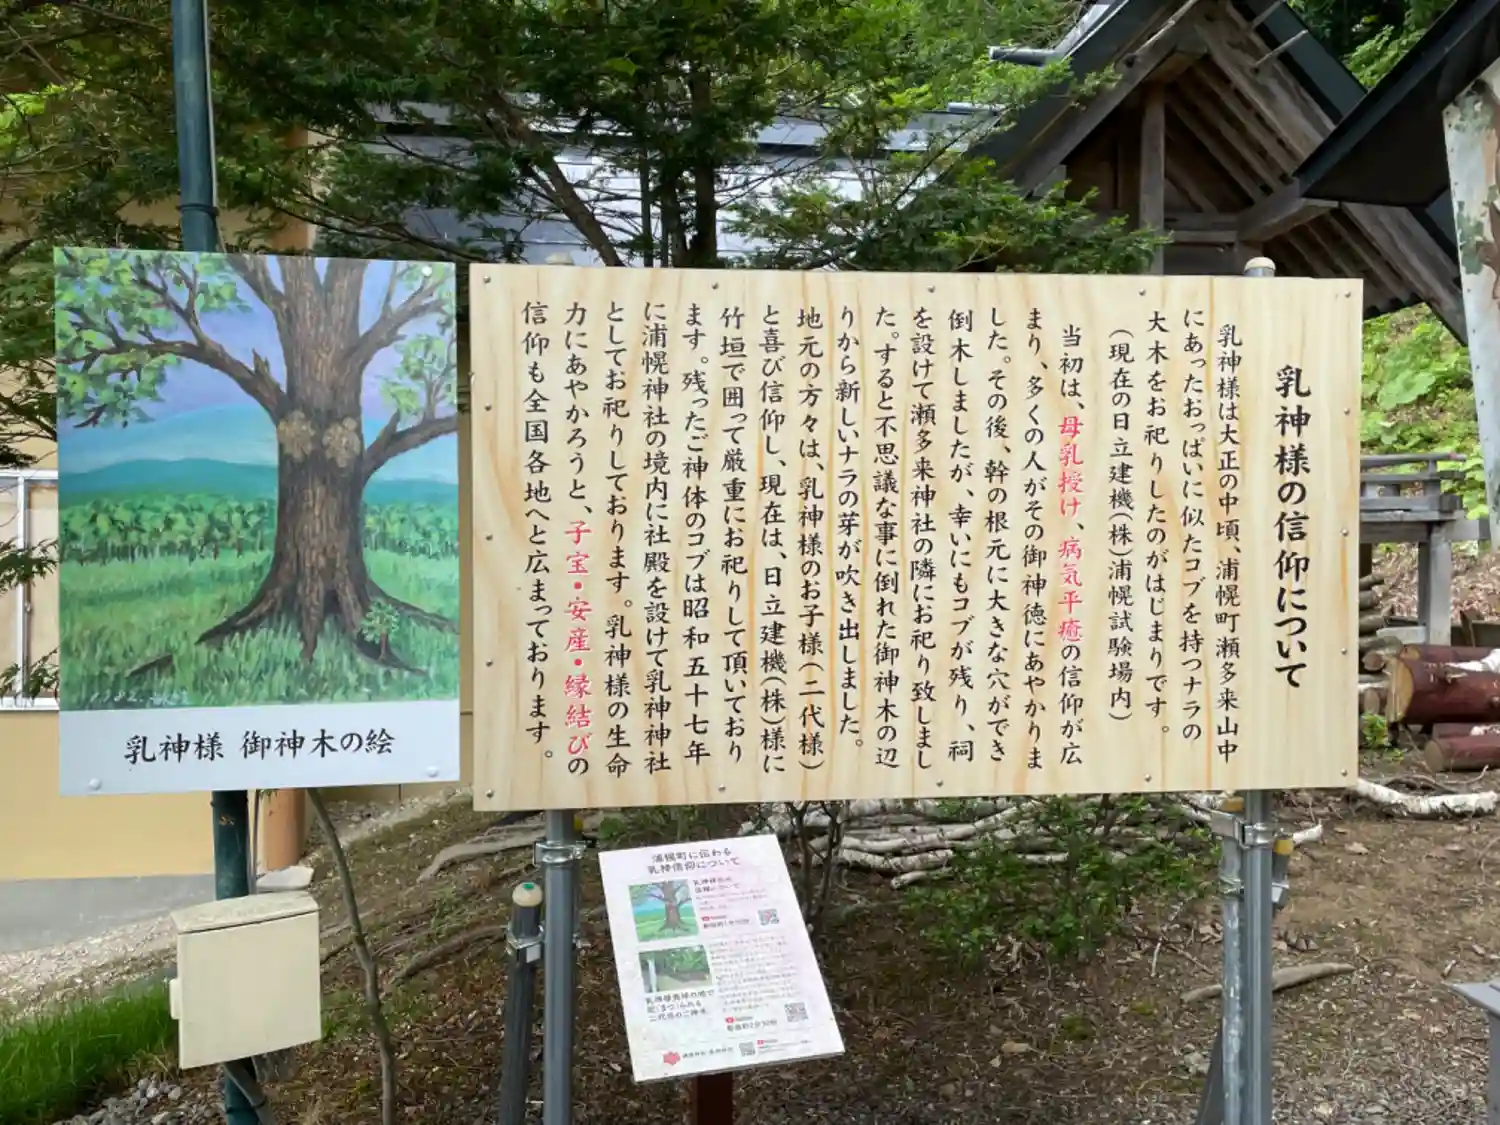 乳神様の信仰について
乳神様は大正の中頃、浦幌町瀬多来山中
にあったおっぱいに似たコブを持つナラの
大木をお祀りしたのがはじまりです。
（現在の日立建機（株）浦幌試験場内）
当初は、母乳授け、病気平癒の信仰が広
まり、多くの人がその御神徳にあやかりま
した。その後、幹の根元に大きな穴ができ
倒木しましたが、幸いにもコブが残り、祠
を設けて瀬多来神社の隣にお祀り致しまし
た。すると不思議な事に倒れた御神木の辺
りから新しいナラの芽が吹き出しました。
地元の方々は、乳神様のお子様（二代様）
と喜び信仰し、現在は、日立建機（株）様に
竹垣で囲って厳重にお祀りして頂いており
ます。残ったご神体のコブは昭和五十七年
に浦幌神社の境内に社殿を設けて乳神神社
としてお祀りしております。乳神様の生命
力にあやかろうと、子宝・安産・縁結びの
信仰も全国各地へと広まっております。
乳神様 御神木の絵
浦幌町に伝わる
乳神信仰について